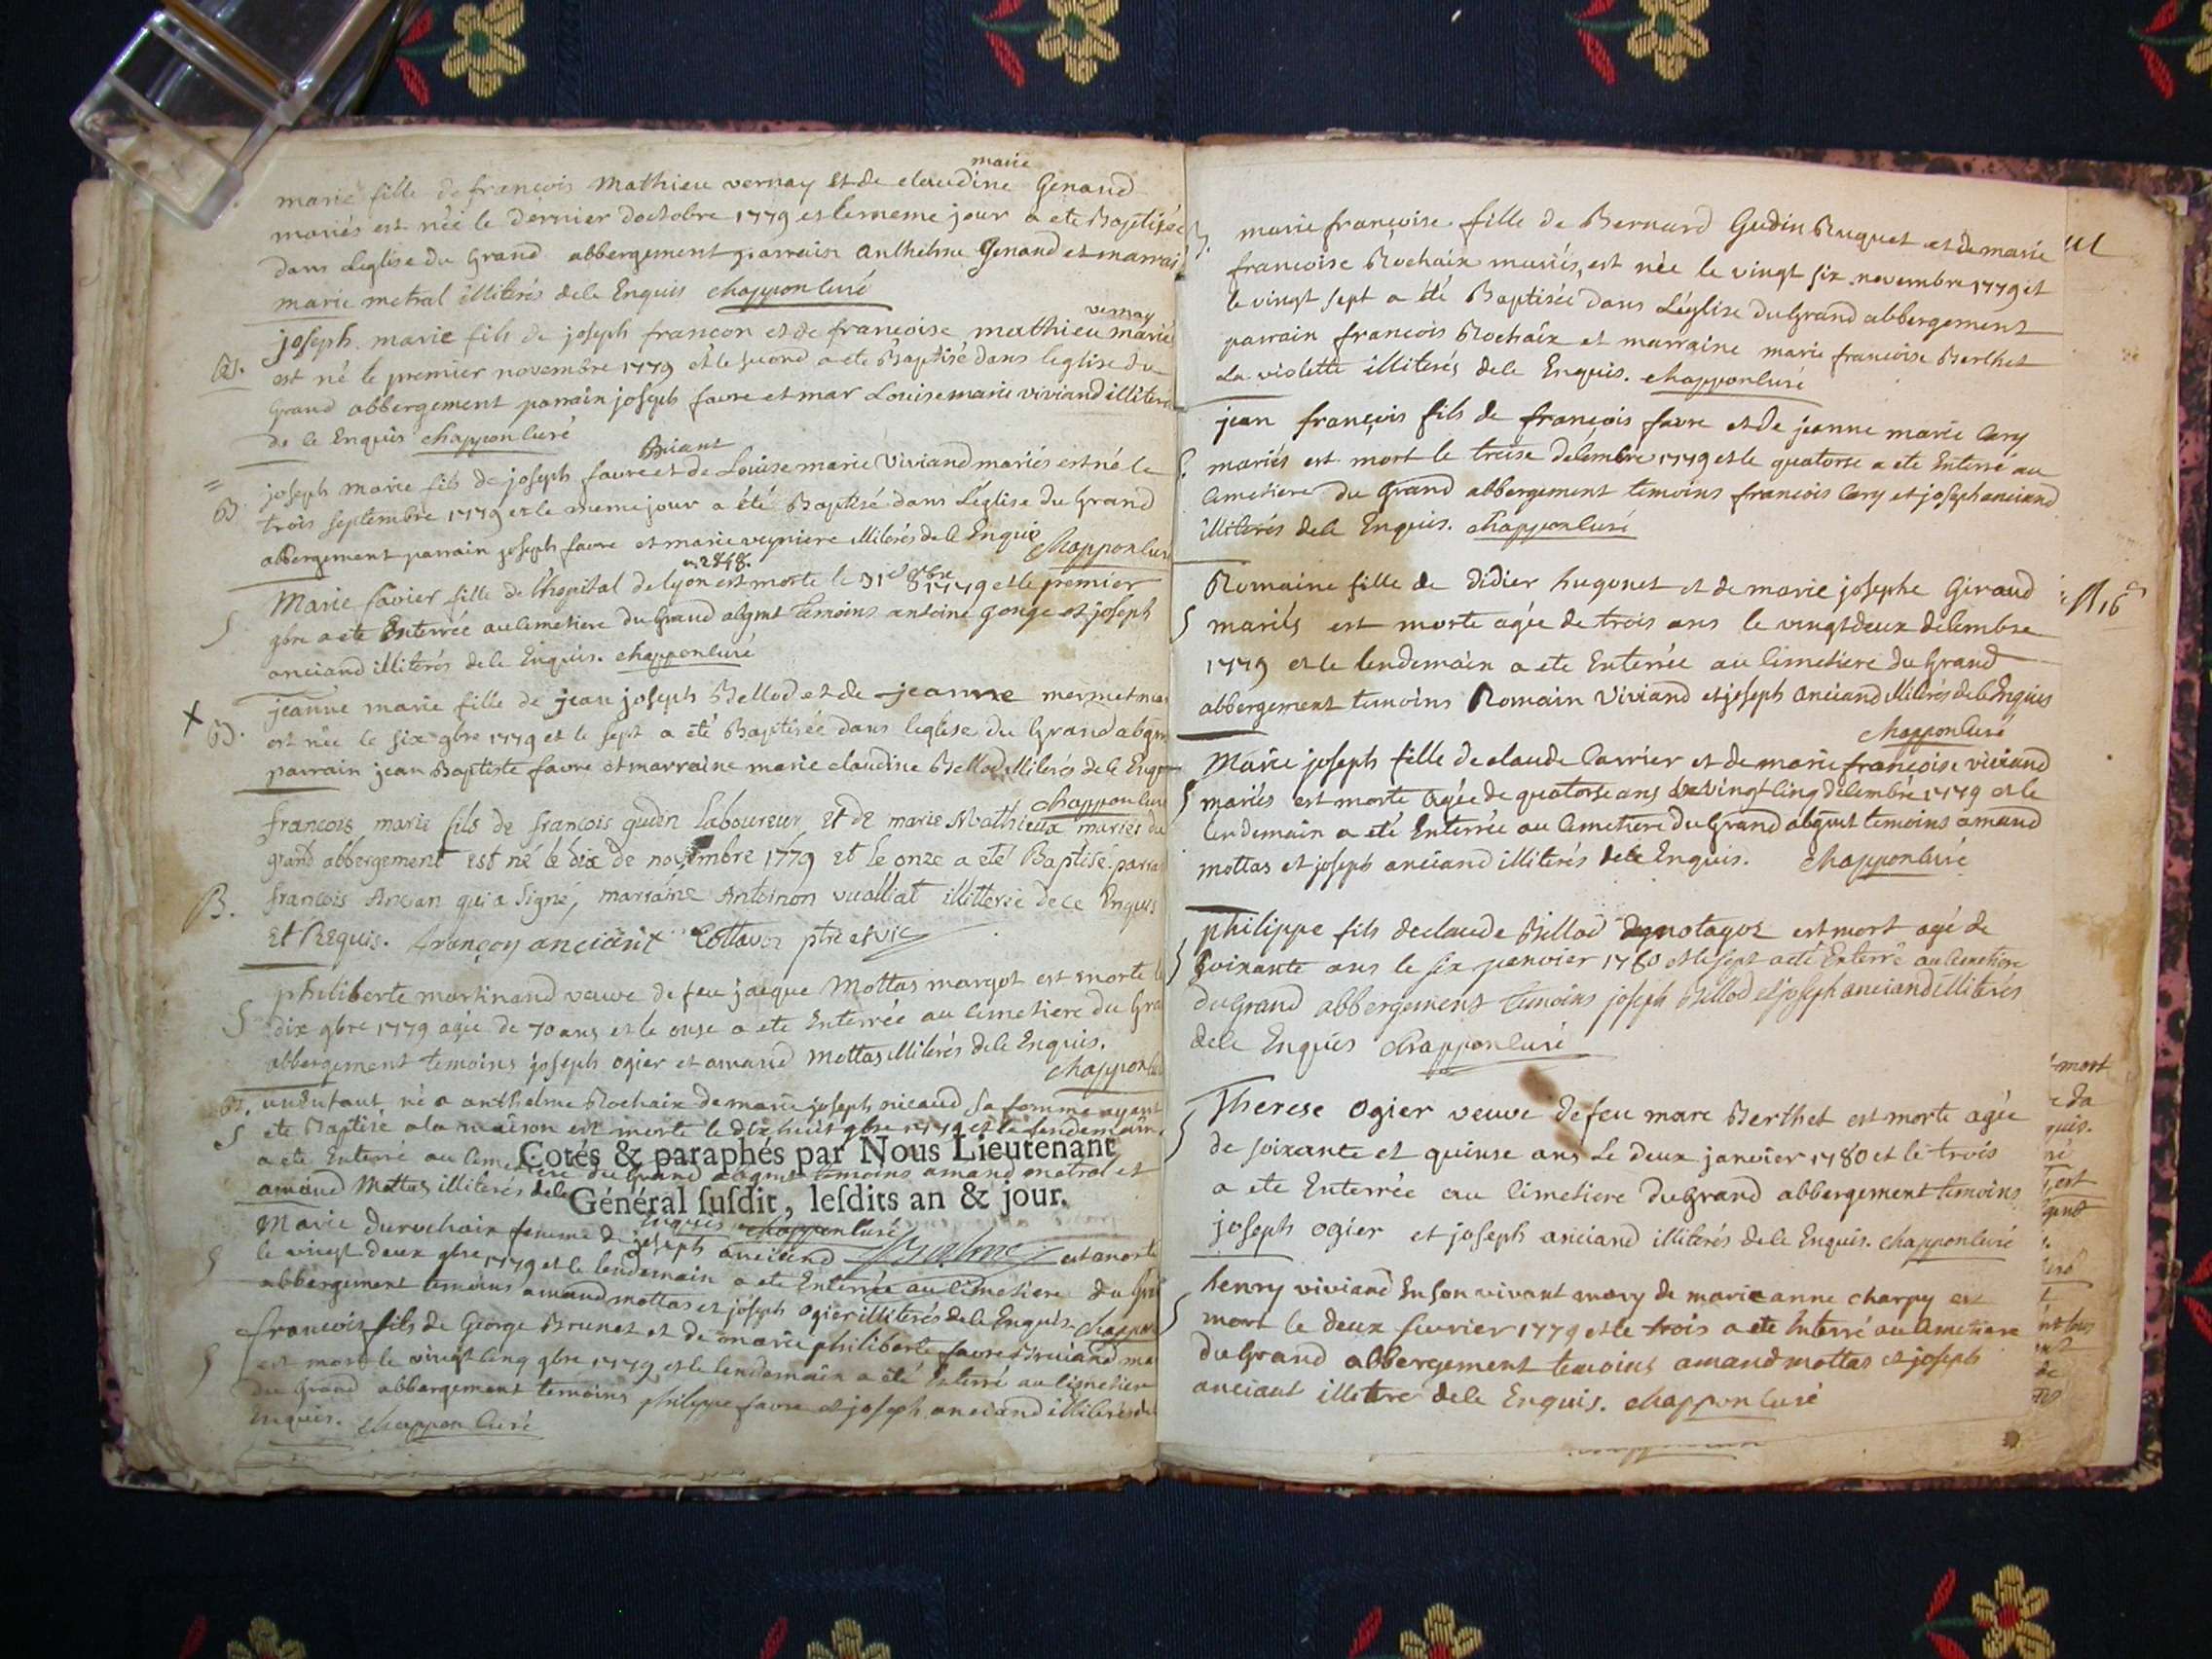 marie
marie fille de françois Mathieu vernay et de claudine Genaud
mariés est née le dernier doctobre 1779 et le meme jour a ete Baptisée
dans Leglise du Grand abbergement parrain Anthelme Genand et marrai
marie metral illiterés dele Enquis chappon curé
vernay
joseph marie fils de joseph françon et de françoise mathieu marié
B. est né le premier novembre 1779 et le second a ete Baptisé dans leglise du
Grand abbergement parrain joseph favre et mar Louise marie viviand illiteré
de le Enquis chappon curé
Briant
joseph marie fils de joseph favre et de Louise marie Viviand mariés est né le
B trois septembre 1779 et le meme jour a été Baptisé dans Léglise du Grand
abbergement parrain joseph favre et marie veyniere illiterés de le Enquis chappon curé
n. 2848.
Marie favier fille de l'hopital de lyon est morte le 31e 8bre 1779 et le premier
S 9bre a ete Enterrée au cimetiere du Grand abgmt temoins antoine gonge et joseph
anciand illiterés dele Enquis. chappon curé
jeanne marie fille de jean joseph Bellod et de jeanne mermet ma
X B. est née le six 9bre 1779 et le sept a été Baptisée dans leglise du Grand abgm
parrain jean Baptiste favre et marraine marie claudine Bellod illiterés de le Enq
chappon curé
francois marie fils de françois gudin Laboureur Et de marie Mathieux mariés du
grand abbergement est né le dix de novembre 1779 et Le onze a eté Baptisé. parra
B. francois Ancian qui a signé, marraine Antoinon vualliat illitterée de ce Enquis
Et Requis. françoy anciant Cottavoz ptre et vic
philiberte martinand veuve de feu jacque Mottas margot est morte le
S dix 9bre 1779 agée de 70 ans et le onse a ete Enterrée au cimetiere du Gra
abbergement temoins joseph ogier et amand Mottas illiterés dele Enquis.
chappon cu
B. un Enfant né a anthelme Rochaix de marie joseph nicaud sa femme ayant
S ete Baptisé a la maison est morte le dix huit 9bre 1779 et le lendemain
a ete Enterré au cimetiere du Grand abgmt temoins amand metral et
Cotés & paraphés par Nous Lieutenant
amand Mottas illiterés dele
Général ſuſdit, leſdits an & jour.
Enquis chappon curé
Marie durochaix femme de joseph anciand est morte
S le vingt deux 9bre 1779 et le lendemain a ete Enterrée au cimetiere du Gra
abbergement temoins amand mottas et joseph ogier illiterés dele Enquis chappon
francois fils de George Brunet et de marie philiberte favre Briand ma
S est mort le vingt cinq 9bre 1779 et le lendemain a été Enterré au cimetier
du Grand abbergement temoins philippe favre et joseph anciand illiterés de
Enquis. chappon curé
marie françoise fille de Bernard Gudin Ruquet et de marie
francoise Rochaix mariés, est née le vingt six novembre 1779 et
le vingt sept a été Baptisée dans Léglise du Grand abbergement
parrain francois Rochaix et marraine marie francoise Berthet
La violette illiterés dele Enquis. chappon curé
jean françois fils de françois favre et de jeanne marie Cary
mariés est mort le treise decembre 1779 et le quatorse a ete Enterré au
Cimetiere du Grand abbergement temoins francois Cary et joseph anciand
illiterés dele Enquis. chappon curé
Romaine fille de didier hugonet et de marie josephe Giraud
S mariés est morte agée de trois ans le vingt deux decembre
1779 et le lendemain a ete Enterrée au cimetiere du Grand
abbergement temoins Romain Viviand et joseph anciand illiterés dele Enquis
chappon curé
Marie joseph fille de claude Carrier et de marie françoise viviand
S mariés est morte agée de quatorse ans le vingt cinq decembre 1779 et le
lendemain a eté Enterrée au Cimetiere du Grand abgmt temoins amand
mottas et joseph anciand illiterés dele Enquis. chappon curé
philippe fils de claude Billod est mort agé de
S soixante ans le six janvier 1780 et le sept a eté Enterré au cimetiere
du Grand abbergement temoins joseph Billod et joseph anciand illiterés
dele Enquis chappon curé
Therese Ogier veuve de feu marc Berthet est morte agée
S de soixante et quinse ans Le deux janvier 1780 et le trois
a ete Enterrée au cimetiere du Grand abbergement temoins
joseph ogier et joseph anciand illiterés dele Enquis. chappon curé
henry viviand En son vivant mary de marie anne charpy est
S mort le deux fevrier 1779 et le trois a ete Enterré au Cimetiere
du Grand abbergement temoins amand mottas et joseph
anciant illitere dele Enquis. chappon curé